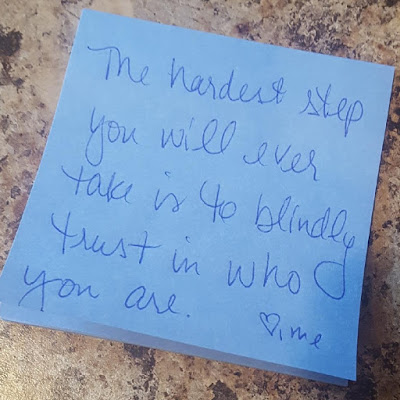 The hardest step
you will ever
take is to blindly
trust in who
you are.
♡, me